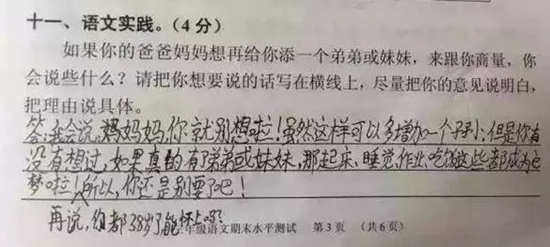 十一、语文实践。(4分)
如果你的爸爸妈妈想再给你添一个弟弟或妹妹,来跟你商量,你
会说些什么?请把你想要说的话写在横线上,尽量把你的意见说明白,
把理由说具体。
答:我会说,妈妈妈,你就别想啦!虽然这样可以多增加一个孩小;但是你有
没有想过,如果真的有弟弟或妹妹,那起床、睡觉,作业,吃饭这些都成为噩
梦啦!所以,你还是别要了吧!
再说,你都38岁了,能怀上吗?
年级语文期末水平测试 第3页 (共6页)